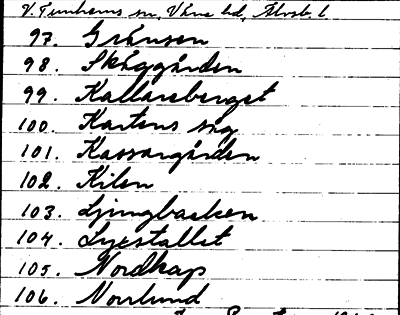 V. Tunhems sn, Väne hd, Älvsb. l.
97. Gränsen
98. Skåggården
99. Kallaseberget
100. Kartens säg
101. Kassargården
102. Kilen
103. Ljungbacken
104. Lyestallet
105. Nordkap
106. Norrlund